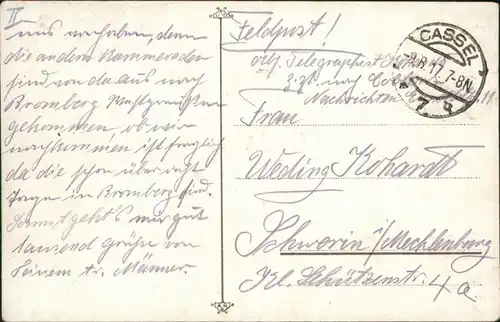 II
uns vorhaben, denn
die andern Kammeraden
sind von da aus nach
Bromberg
gekommen, ob wir
nachkommen ist fraglich
da die schon über acht
Tage in Bromberg sind.
Sonst geht's mir gut
tausend Grüße von
Deinem tr. Männe.
Feldpost!
Abs. Telegraphist
z. Zt.
Nachrichten
Frau
Weding Kohardt
Schwerin i/Mecklenburg
Kl. Schützenstr.
4a
CASSEL
7-8N
* 7 *